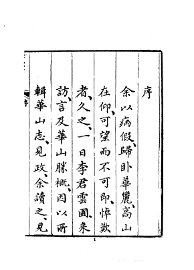 序
余以病假歸卧華麓高山
在仰可望而不可即悵歎
者久之一日李君雲圃來
訪言及華山勝概因以所
輯華山志見政余讀之見